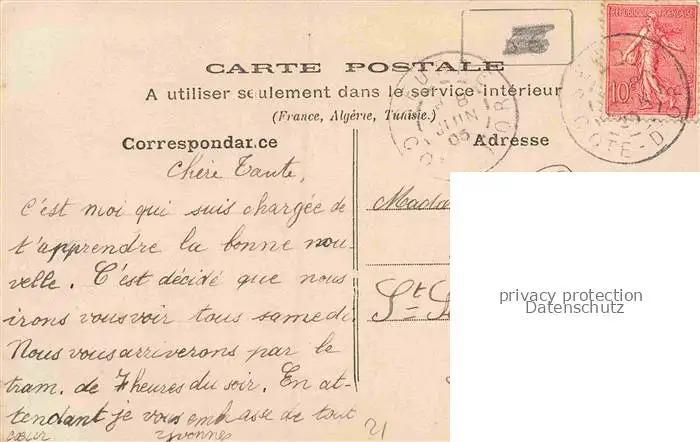 CARTE POSTALE
A utiliser seulement dans le service intérieur
(France, Algérie, Tunisie.)
Correspondance
Adresse
RÉPUBLIQUE FRANÇAISE
10c
JUIN
05
COTE-D'OR
Chère Tante,
C'est moi qui suis chargée de
t'apprendre la bonne nou-
velle. C'est décidé que nous
irons vous voir tous samedi.
Nous vous arriverons par le
tram. de 7 heures du soir. En at-
tendant je vous embrasse de tout
cœur Yvonne
21
Mada
St
privacy protection
Datenschutz